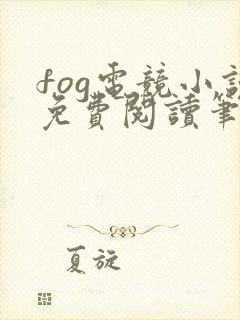 fog電競小說
免費閱讀筆
夏旋